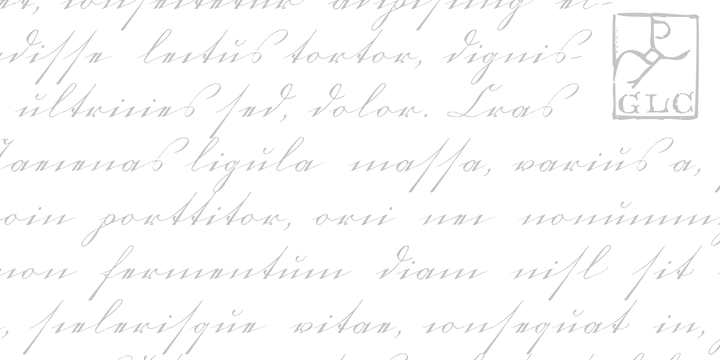 et, consectetur adipiscing el-
disse lectus tortor, dignis-
ultricies sed, dolor. Cras
GLC
Maecenas ligula massa, varius a,
oin porttitor, orci nec nonummy
non fermentum diam nisl sit
, scelerisque vitae, consequat in,